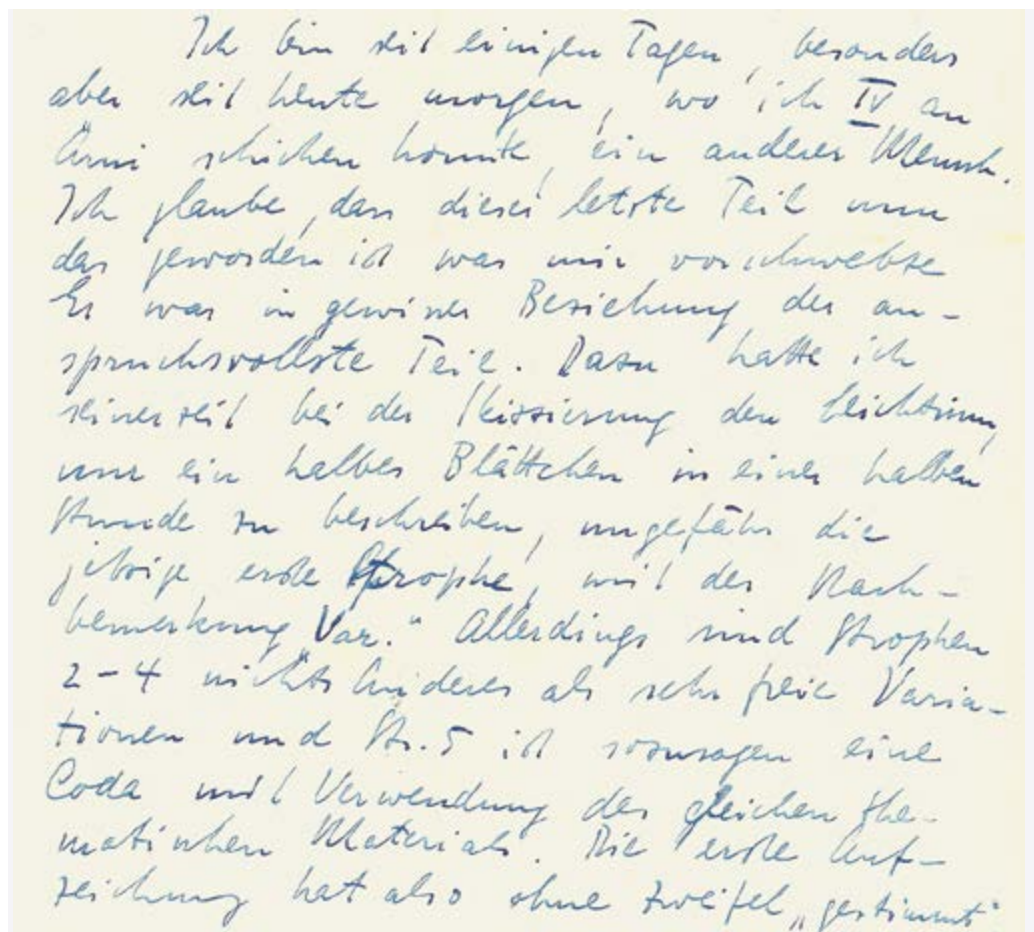 Ich bin seit einigen Tagen, besonders
aber seit heute morgen, wo ich IV an
Ärni schicken konnte, ein anderer Mensch.
Ich glaube, dass dieser letzte Teil nun
das geworden ist was mir vorschwebte
Er war in gewisser Beziehung der an-
spruchsvollste Teil. Dazu hatte ich
seinerzeit bei der Skizzierung den Leichtsinn,
nur ein halbes Blättchen in einer halben
Stunde zu beschreiben, ungefähr die
jetzige erste Strophe, mit der Nach-
bemerkung „Var." Allerdings sind Strophen
2-4 nichts Anderes als sehr freie Varia-
tionen und Str. 5 ist sozusagen eine
Coda mit Verwendung des gleichen the-
matischen Materials. Die erste Auf-
zeichnung hat also ohne Zweifel „gestimmt"